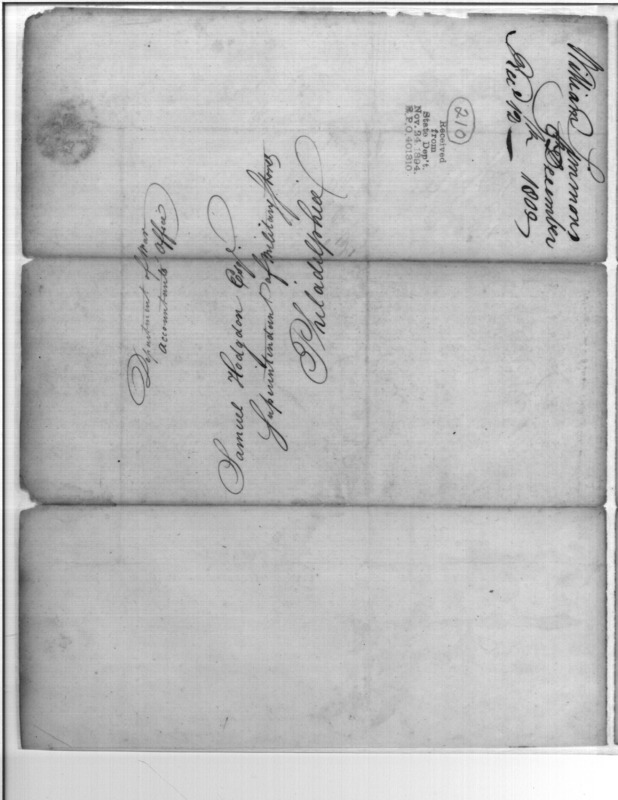 William Simmons
6 December
Rec'd 12th — 1800
210
Received
from
State Dep't.
Nov. 24 1894.
R.P.O. 401310
Department of War
Accountants Office
Samuel Hodgdon Esqr.
Superintendent of Military Stores
Philadelphia